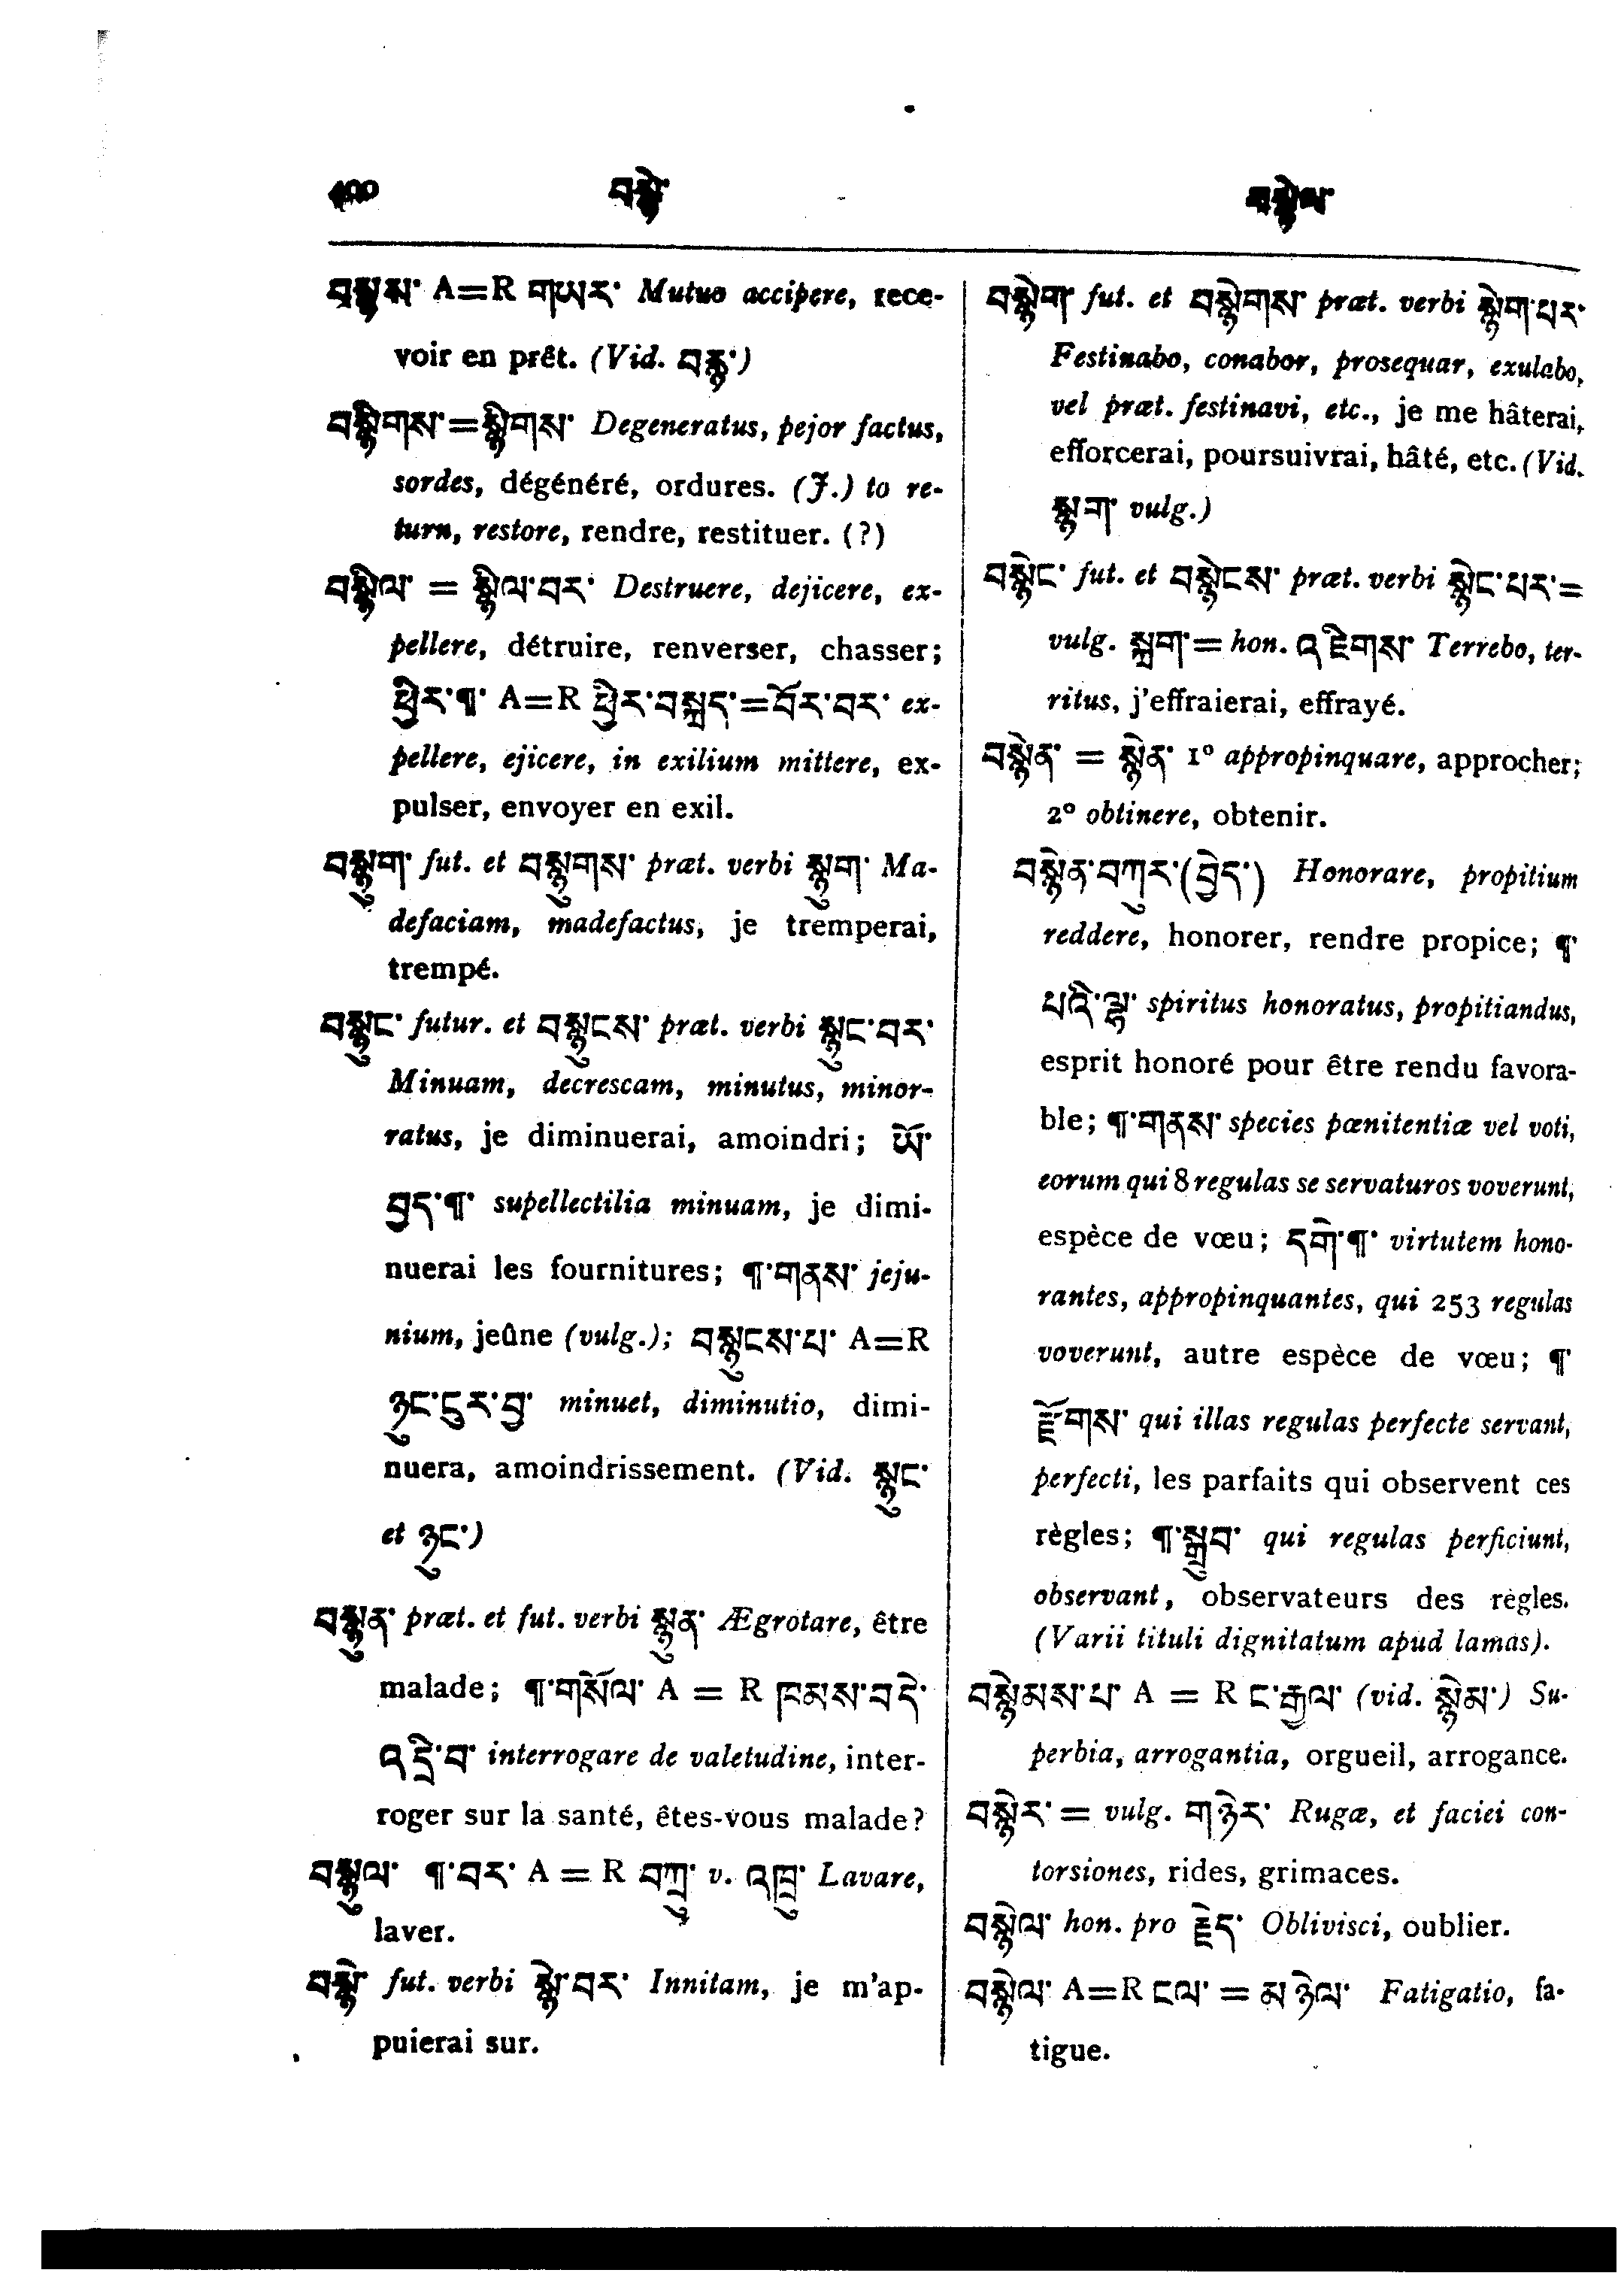 400 བསྙེ་ བསྙེལ་
བསྙམ་ A=R གཡར་ Mutuo accipere, rece-
voir en prêt. (Vid. བརྙ་)
བསྙིགས་=སྙིགས་ Degeneratus, pejor factus,
sordes, dégénéré, ordures. (J.) to re-
turn, restore, rendre, restituer. (?)
བསྙིལ་ = སྙིལ་བར་ Destruere, dejicere, ex-
pellere, détruire, renverser, chasser;
ཕྱིར་¶་ A=R ཕྱིར་བསྐྲད་=བོར་བར་ ex-
pellere, ejicere, in exilium mittere, ex-
pulser, envoyer en exil.
བསྙུག་ fut. et བསྙུགས་ præt. verbi སྙུག་ Ma-
defaciam, madefactus, je tremperai,
trempé.
བསྙུང་ futur. et བསྙུངས་ præt. verbi སྙུང་བར་
Minuam, decrescam, minutus, minor-
ratus, je diminuerai, amoindri; ཡོ་
བྱད་¶་ supellectilia minuam, je dimi-
nuerai les fournitures; ¶་གནས་ jeju-
nium, jeûne (vulg.); བསྙུངས་པ་ A=R
ཉུང་ངུར་བྱ་ minuet, diminutio, dimi-
nuera, amoindrissement. (Vid. སྙུང་
et ཉུང་)
བསྙུན་ præt. et fut. verbi སྙུན་ Ægrotare, être
malade; ¶་གསོལ་ A = R ཁམས་བདེ་
འདྲི་བ་ interrogare de valetudine, inter-
roger sur la santé, êtes-vous malade?
བསྙུལ་ ¶་བར་ A = R བཀྲུ་ v. འཁྲུ་ Lavare,
laver.
བསྙེ་ fut. verbi སྙེ་བར་ Innitam, je m'ap-
puierai sur.
བསྙེག་ fut. et བསྙེགས་ præt. verbi སྙེག་པར་
Festinabo, conabor, prosequar, exulabo,
vel præt. festinavi, etc., je me hâterai,
efforcerai, poursuivrai, hâté, etc. (Vid.
སྙག་ vulg.)
བསྙེང་ fut. et བསྙེངས་ præt. verbi སྙེང་པར་=
vulg. སྐྲག་= hon. འཇིགས་ Terrebo, ter-
ritus, j'effraierai, effrayé.
བསྙེན་ = སྙེན་ 1º appropinquare, approcher;
2º obtinere, obtenir.
བསྙེན་བཀུར་(བྱེད་) Honorare, propitium
reddere, honorer, rendre propice; ¶་
པའི་ལྷ་ spiritus honoratus, propitiandus,
esprit honoré pour être rendu favora-
ble; ¶་གནས་ species pœnitentiæ vel voti,
eorum qui 8 regulas se servaturos voverunt,
espèce de vœu; དགེ་¶་ virtutem hono-
rantes, appropinquantes, qui 253 regulas
voverunt, autre espèce de vœu; ¶་
རྫོགས་ qui illas regulas perfecte servant,
perfecti, les parfaits qui observent ces
règles; ¶་སྒྲུབ་ qui regulas perficiunt,
observant, observateurs des règles.
(Varii tituli dignitatum apud lamas).
བསྙེམས་པ་ A = R ང་རྒྱལ་ (vid. སྙེམ་) Su-
perbia, arrogantia, orgueil, arrogance.
བསྙེར་ = vulg. གཉེར་ Rugæ, et faciei con-
torsiones, rides, grimaces.
བསྙེལ་ hon. pro རྗེད་ Oblivisci, oublier.
བསྙེལ་ A=R ངལ་ = མཉེལ་ Fatigatio, fa-
tigue.